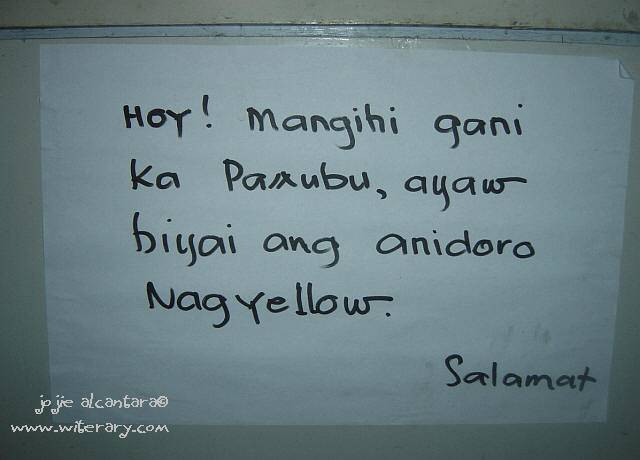 Hoy! Mangihi gani
ka Paxubu, ayaw
biyai ang anidoro
Nagyellow.
Salamat
jojie alcantara©
www.witerary.com